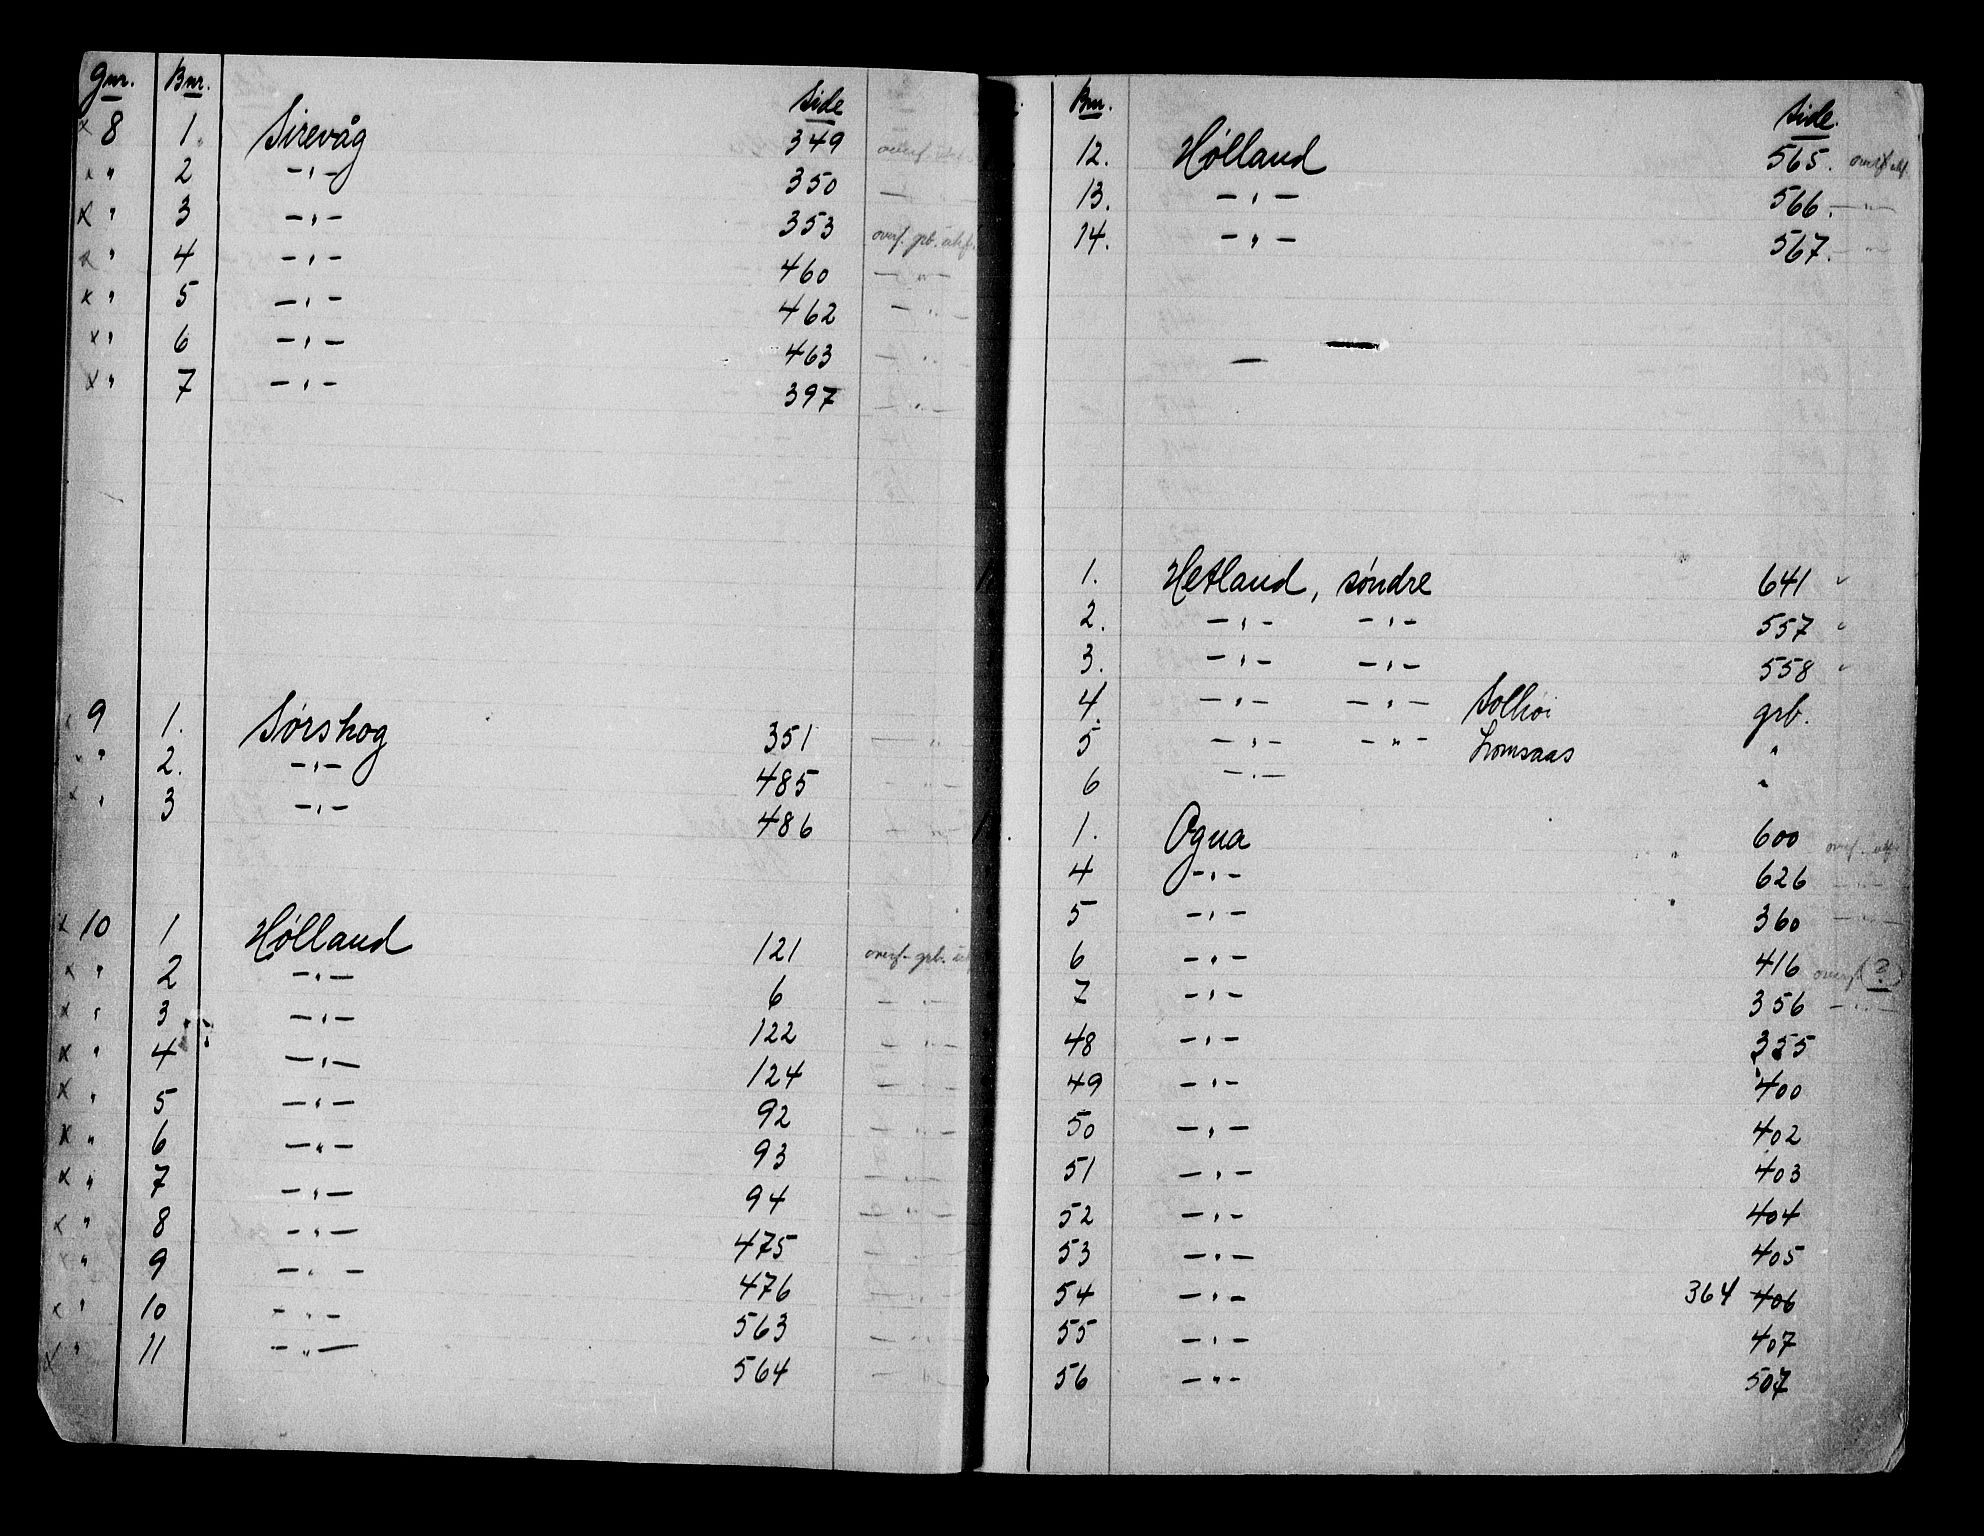 Gnr. Bnr. Side
x 8 1. Sirevåg 349
x " 2 -"- 350 -
x " 3 -"- 353 overf. grb. utskf.
x " 4 -"- 460 -"-
x " 5 -"- 462 -"-
x " 6 -"- 463 -"-
x " 7 -"- 397 -"-
x 9 1. Sørskog 351 -"-
" 2. -"- 485 -"-
x " 3 -"- 486 -"-
x 10 1 Hølland 121 overf. grb.
x " 2 -"- 6 -"-
x " 3 -"- 122 -"-
x " 4 -"- 124 -"-
x " 5 -"- 92 -"-
x " 6 -"- 93
x " 7 -"- 94 -"-
x " 8 -"- 475 -"-
x " 9 -"- 476 -"-
x " 10 -"- 563 -"-
x " 11 -"- 564 -"-
Bnr. Side.
12. Hølland 565. overf.
13. -"- 566. -"-
14. -"- 567. -"-
1. Hetland, søndre 641
2. -"- -"- 557
3. -"- -"- 558
4. -"- -"- Solhøi grb.
5 -"- -"- Lomsaas "
6 -"- "
1. Ogna 600 overf.
4 -"- 626 -"-
5 -"- 360 -"-
6 -"- 416 overf. (?)
7 -"- 356 -"-
48 -"- 355
49 -"- 400
50 -"- 402
51 -"- 403
52 -"- 404
53 -"- 405
54 -"- 364 406
55 -"- 407
56 -"- 507